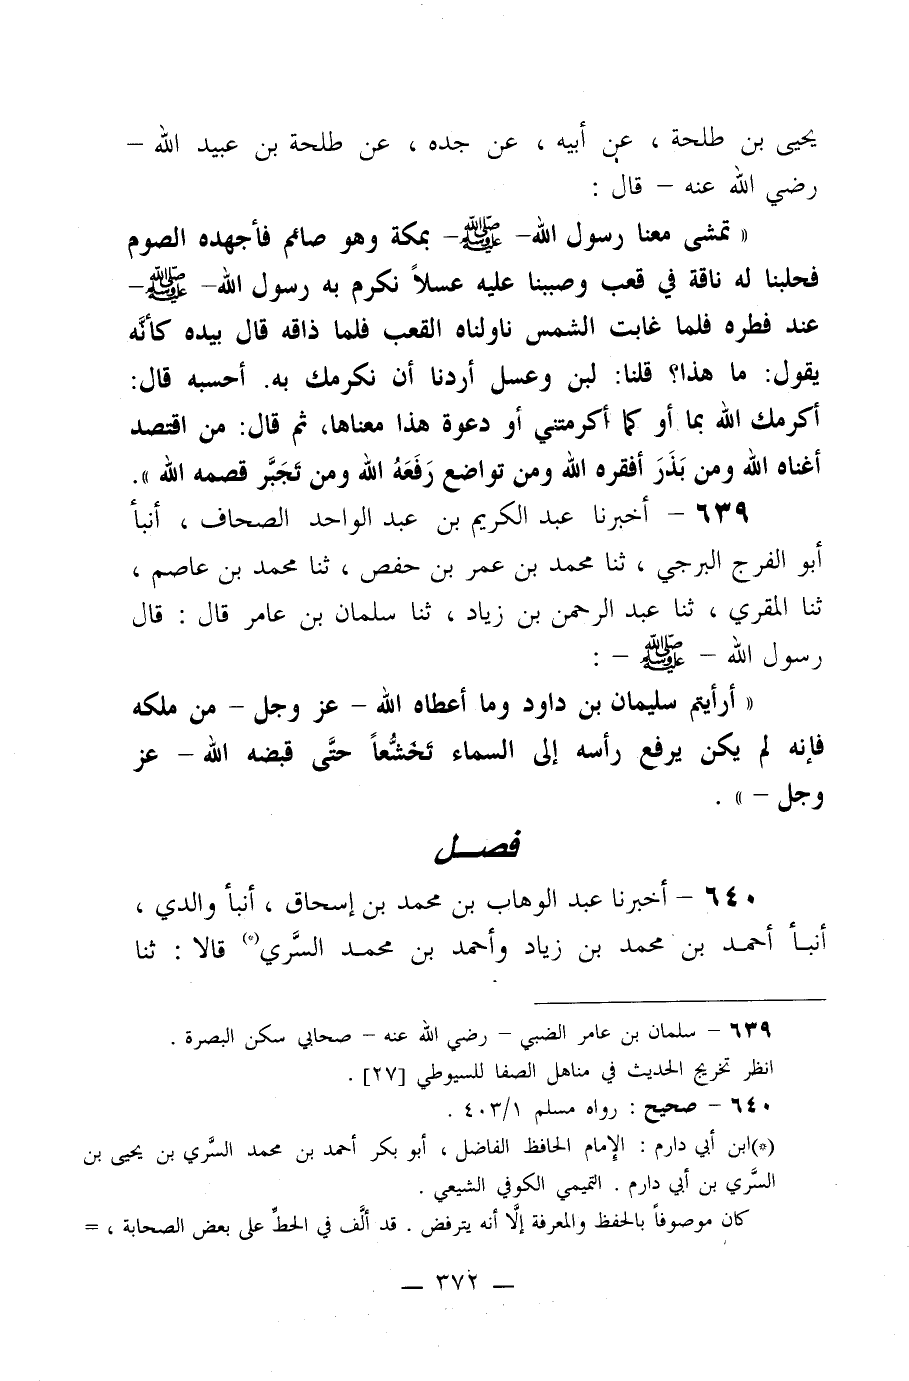 يحيى بن طلحة ، عن أبيه ، عن جده ، عن طلحة بن عبيد الله –
رضي الله عنه – قال :
« تمشى معنا رسول الله– ﷺ– بمكة وهو صائم فأجهده الصوم
فحلبنا له ناقة في قعب وصببنا عليه عسلاً نكرم به رسول الله– ﷺ–
عند فطره فلما غابت الشمس ناولناه القعب فلما ذاقه قال بيده كأنَّه
يقول: ما هذا؟ قلنا: لبن وعسل أردنا أن نكرمك به. أحسبه قال:
أكرمك الله بما أو كما أكرمتني أو دعوة هذا معناها، ثم قال: من اقتصد
أغناه الله ومن بَذَرَ أفقره الله ومن تواضع رَفَعَهُ الله ومن تَجَبَّر قصمه الله ».
٦٣٩ – أخبرنا عبد الكريم بن عبد الواحد الصحاف ، أنبأ
أبو الفرج البرجي ، ثنا محمد بن عمر بن حفص ، ثنا محمد بن عاصم ،
ثنا المقري ، ثنا عبد الرحمن بن زياد ، ثنا سلمان بن عامر قال : قال
رسول الله – ﷺ – :
« أرأيتم سليمان بن داود وما أعطاه الله – عز وجل – من ملكه
فإنه لم يكن يرفع رأسه إلى السماء تَخَشُّعاً حتَّى قبضه الله – عز
وجل – » .
فصــل
٦٤٠ – أخبرنا عبد الوهاب بن محمد بن إسحاق ، أنبأ والدي ،
أنبـأ أحمـد بن محمد بن زياد وأحمد بن محمـد السَّري(*) قالا : ثنا
٦٣٩ – سلمان بن عامر الضبي – رضي الله عنه – صحابي سكن البصرة .
انظر تخريج الحديث في مناهل الصفا للسيوطي [٢٧] .
٦٤٠ – صحيح : رواه مسلم ٤٠٣/١ .
(*)ابن أبي دارم : الإمام الحافظ الفاضل ، أبو بكر أحمد بن محمد السَّري بن يحيى بن
السَّري بن أبي دارم . التميمي الكوفي الشيعي .
كان موصوفاً بالحفظ والمعرفة إلَّا أنه يترفض . قد ألَّف في الحطِّ على بعض الصحابة ، =
— ٣٧٢ —